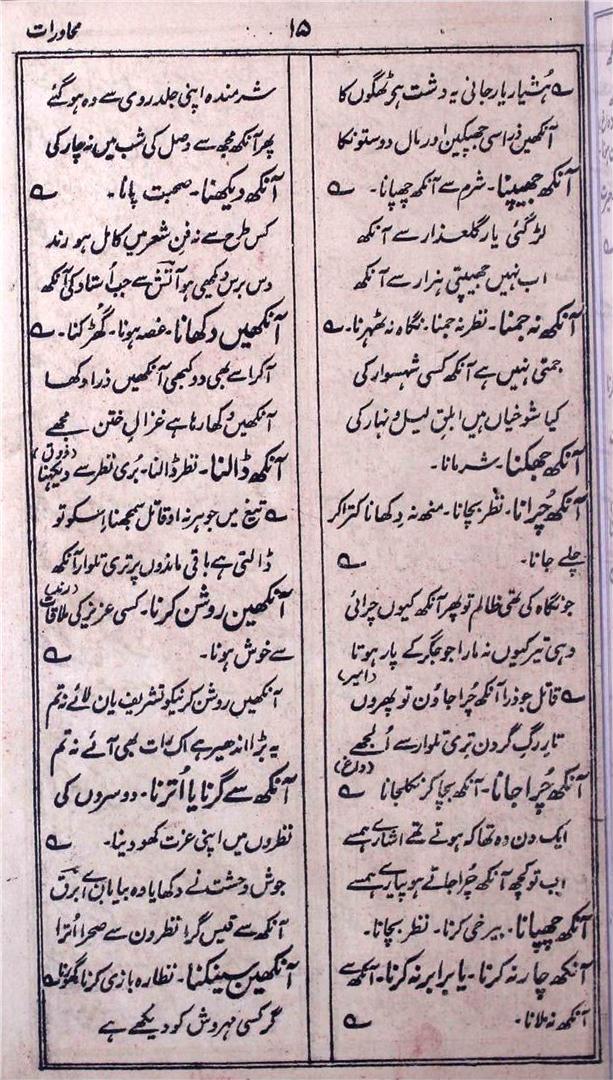 محاورات
۱۵
ہُشیار یار جانی یہ دشت ہر ٹھگوں کا
آنکھیں ذراسی جھپکیں اور مال دوستونکا
آنکھ جھپپنا۔ شرم سے آنکھ چھپانا۔
لڑ گئی یار گلعذار سے آنکھ
اب نہیں جھپپتی ہزار سے آنکھ
آنکھ نہ جمنا۔ نظر نہ جمنا۔ نگاہ نہ ٹھہرنا۔
جمتی نہیں ہے آنکھ کسی شہسوار کی
کیا شوخیاں ہیں ابلق لیل و نہار کی
آنکھ جھکنا۔ شرمانا۔
آنکھ چُرانا۔ نظر بچانا۔ منھ نہ دکھانا کتراکر
چلے جانا۔
جو نگاہ کی تھی ظالم تو پھر آنکھ کیوں چرائی
وہی تیر کیوں نہ مارا جو جگر کے پار ہوتا
(امیر)
قاتل جو ذرا آنکھ چُرا جاؤن تو پھروں
تارِ رگِ گردن تری تلوار سے اُلجھے
(داغ)
آنکھ چُرا جانا۔ آنکھ بچا کر نکلجانا
ایک دن وہ تھا کہ ہوتے تھے اشارے ہمسے
اب تو کچھ آنکھ چُرا جاتے ہو پیارے ہمسے
آنکھ چھپانا۔ بیرخی کرنا۔ نظر بچانا۔
آنکھ چار نہ کرنا۔ یا برابر نہ کرنا۔ آنکھ سے
آنکھ نہ ملانا۔
شرمندہ اپنی جلد روی سے وہ ہو گئے
پھر آنکھ مجھ سے وصل کی شب میں نہ چار کی
آنکھ دیکھنا۔ صحبت پانا۔
کس طرح سے نہ فن شعر میں کامل ہو رند
دس برس دیکھی ہو آتش سے جب اُستاد کی آنکھ
آنکھیں دکھانا۔ غصہ ہونا۔ گھُڑکنا۔
آکر اے بھی دو کبھی آنکھیں ذرا دکھا
آنکھیں دکھا رہا ہے غزال ختن مجھے
(ذوق)
آنکھ ڈالنا۔ نظر ڈالنا۔ بُری نظر سے دیکھنا
تیغ میں جوہر نہ او قاتل سمجھنا اسکو تو
ڈالتی ہے باقی ماندوں پر تری تلوار آنکھ
(رند)
آنکھین روشن کرنا۔ کسی عزیز کی ملاقات
سے خوش ہونا۔
آنکھیں روشن کرنیکو تشریف یان لائے نہ تم
یہ بڑا اندھیر ہے اک رات بھی آئے نہ تم
آنکھ سے گرنا یا اُترنا۔ دوسروں کی
نظروں میں اپنی عزت کھو دینا۔
جوش وحشت نے دکھایا وہ بیابان اے برق
آنکھ سے قیس گرا نظرون سے صحرا اُترا
آنکھین سینکنا۔ نظارہ بازی کرنا گھورنا
گر کسی مہروش کو دیکھے ہے